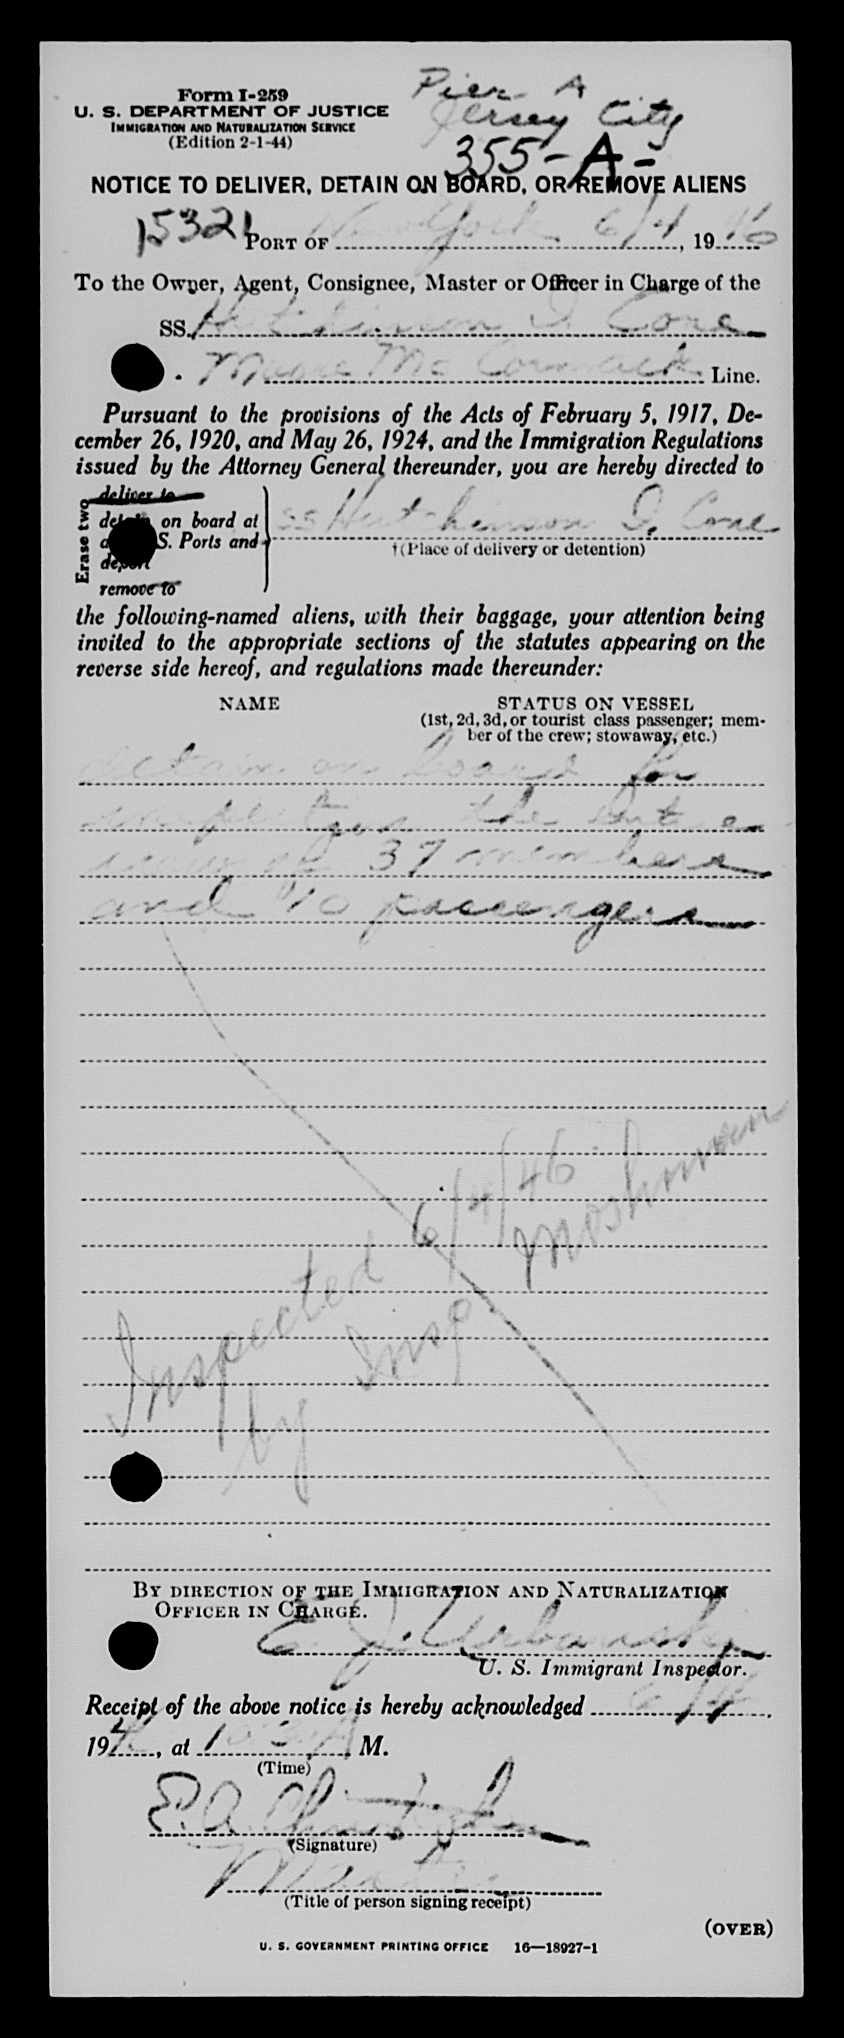 Form I-259
U. S. DEPARTMENT OF JUSTICE
IMMIGRATION AND NATURALIZATION SERVICE
(Edition 2-1-44)
Pier A
Jersey City
355-A-
NOTICE TO DELIVER, DETAIN ON BOARD, OR REMOVE ALIENS
15321
PORT OF New York 6/4, 1946
To the Owner, Agent, Consignee, Master or Officer in Charge of the
SS. Hutchinson I. Cone
Moore McCormack Line.
Pursuant to the provisions of the Acts of February 5, 1917, De-
cember 26, 1920, and May 26, 1924, and the Immigration Regulations
issued by the Attorney General thereunder, you are hereby directed to
Erase two
deliver to
detain on board at
S. Ports and
deport
remove to
SS Hutchinson I. Cone
†(Place of delivery or detention)
the following-named aliens, with their baggage, your attention being
invited to the appropriate sections of the statutes appearing on the
reverse side hereof, and regulations made thereunder:
NAME
STATUS ON VESSEL
(1st, 2d, 3d, or tourist class passenger; mem-
ber of the crew; stowaway, etc.)
detain on board for
the entire
crew of 37 members
and 10 passengers
Inspected 6/4/46
by Insp Moshman
BY DIRECTION OF THE IMMIGRATION AND NATURALIZATION
OFFICER IN CHARGE.
E. J. Urbanski
U. S. Immigrant Inspector.
Receipt of the above notice is hereby acknowledged 6/4,
1946, at 10 A M.
(Time)
E. A.
(Signature)
Master
(Title of person signing receipt)
(OVER)
U. S. GOVERNMENT PRINTING OFFICE 16—18927-1